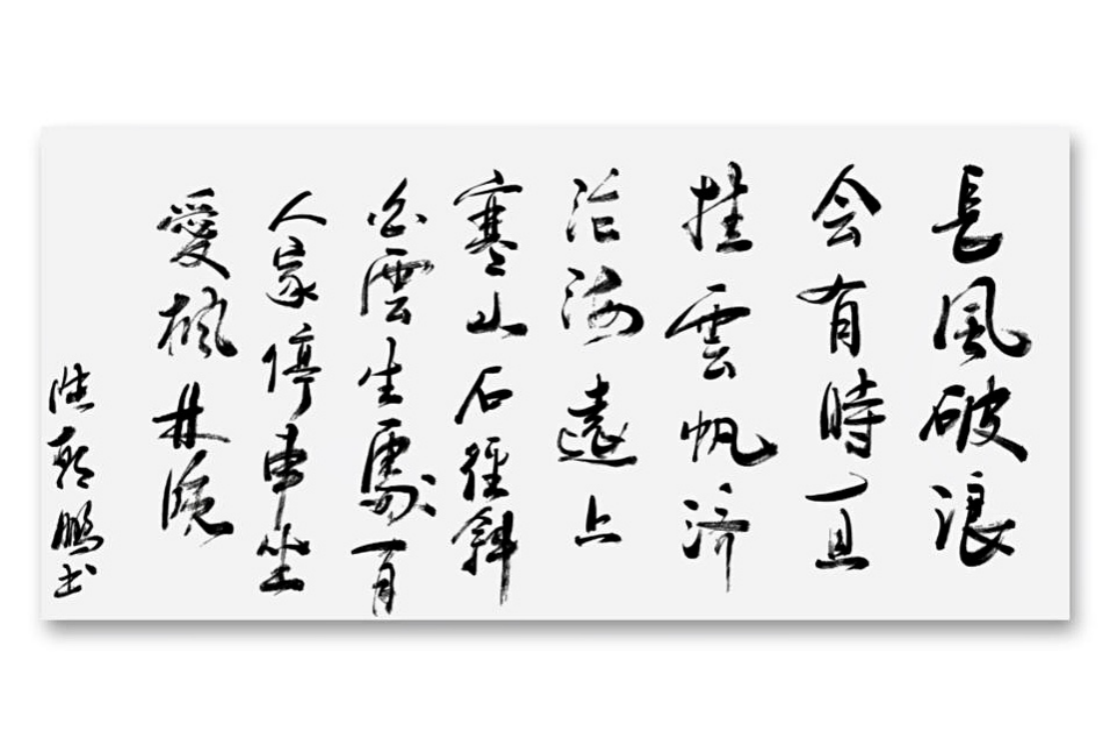 長風破浪
会有時直
挂雲帆济
沧海遠上
寒山石徑斜
白雲生處有
人家停車坐
愛枫林晚
鹏书